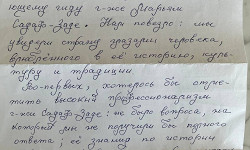 ющему гиду г-же Марьям
Садаф-Заде. Нам повезло: мы
увидели страну глазами человека,
влюблённого в её историю, куль-
туру и традиции.
Во-первых, хотелось бы отме-
тить высокий профессионализм
г-жи Садаф-Заде: не было вопроса, на
который мы не получили бы полного
ответа; её знания по истории